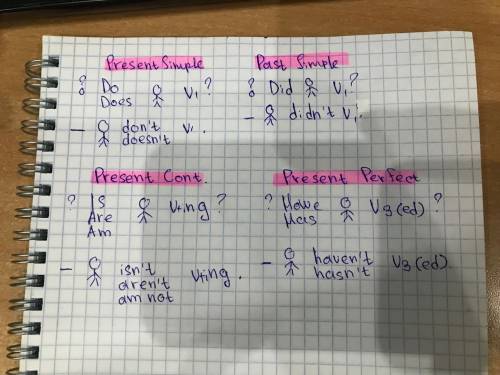 Present Simple
? Do V1 ?
Does
— don't V1 .
doesn't
Past Simple
? Did V1 ?
— didn't V1 .
Present Cont.
? Is V+ing ?
Are
Am
— isn't V+ing .
aren't
am not
Present Perfect
? Have V3 (ed) ?
Has
— haven't V3 (ed) .
hasn't